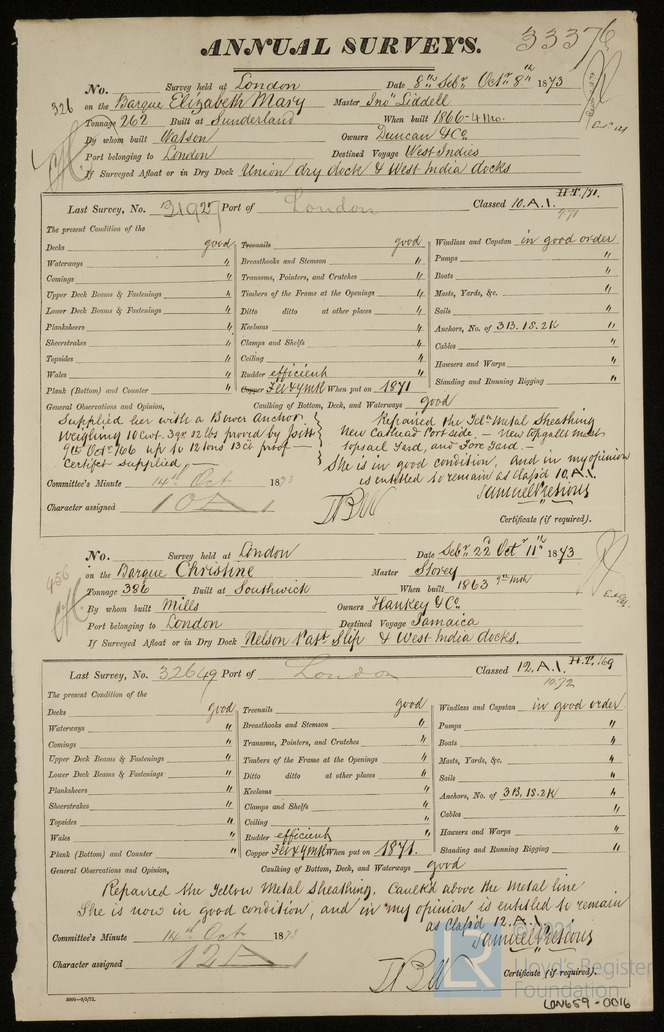 33376
ANNUAL SURVEYS.
No. 326 Survey held at London Date 8th Sebr. Octr 8th 1873
on the Barque Elizabeth Mary Master Jno Liddell
Tonnage 262 Built at Sunderland When built 1866-4 mo.
By whom built Watson Owners Duncan & Co
Port belonging to London Destined Voyage West Indies
If Surveyed Afloat or in Dry Dock Union dry dock & West India docks
H.T./71.
Last Survey, No. 31927 Port of London Classed 10.A.1.
The present Condition of the
Decks good
Waterways "
Comings "
Upper Deck Beams & Fastenings "
Lower Deck Beams & Fastenings "
Planksheers "
Sheerstrakes "
Topsides "
Wales "
Plank (Bottom) and Counter "
Treenails good
Breasthooks and Stemson "
Transoms, Pointers, and Crutches "
Timbers of the Frame at the Openings "
Ditto ditto at other places "
Keelsons "
Clamps and Shelfs "
Ceiling "
Rudder efficient
Copper When put on 1871
Windlass and Capstan in good order
Pumps "
Boats "
Masts, Yards, &c. "
Sails "
Anchors, No. of 3B. 1S. 2K "
Cables "
Hawsers and Warps "
Standing and Running Rigging "
General Observations and Opinion, Caulking of Bottom, Deck, and Waterways good
Supplied her with a Bower Anchor
Weighing 10 cwt. 3 qr. 02 lbs proved by
9th Octr /66 up to 12 tons 13 ct proof
Certifct supplied
Repaired the Metal Sheathing
New Cathead Port side. - New mast
topsail Yard, and Fore Yard. -
She is in good condition, and in my opinion
is entitled to remain as clas'd 10.A.1.
Committee's Minute 14th Oct 1873
Character assigned 10A1
Certificate (if required).
No. 456 Survey held at London Date Sebr 22d Octr 11th 1873
on the Barque Christine Master Storey
Tonnage 386 Built at Southwick When built 1863 9th mo
By whom built Mills Owners Hankey & Co.
Port belonging to London Destined Voyage Jamaica
If Surveyed Afloat or in Dry Dock Nelson Patt Slip & West India docks.
H.T. /69
Last Survey, No. 32649 Port of London Classed 12.A.1.
10.72
The present Condition of the
Decks good
Waterways "
Comings "
Upper Deck Beams & Fastenings "
Lower Deck Beams & Fastenings "
Planksheers "
Sheerstrakes "
Topsides "
Wales "
Plank (Bottom) and Counter "
Treenails good
Breasthooks and Stemson "
Transoms, Pointers, and Crutches "
Timbers of the Frame at the Openings "
Ditto ditto at other places "
Keelsons "
Clamps and Shelfs "
Ceiling "
Rudder efficient
Copper When put on 1871.
Windlass and Capstan in good order
Pumps "
Boats "
Masts, Yards, &c. "
Sails "
Anchors, No. of 3B. 1S. 2K "
Cables "
Hawsers and Warps "
Standing and Running Rigging "
General Observations and Opinion, Caulking of Bottom, Deck, and Waterways good
Repaired the Yellow Metal Sheathing. Caulk'd above the metal line
She is now in good condition, and in my opinion is entitled to remain
as Clas'd 12.A.1.
Committee's Minute 14th Oct 1873
Character assigned 12A1
Certificate (if required).
LR
Lloyd's Register
Foundation
LON659-0016